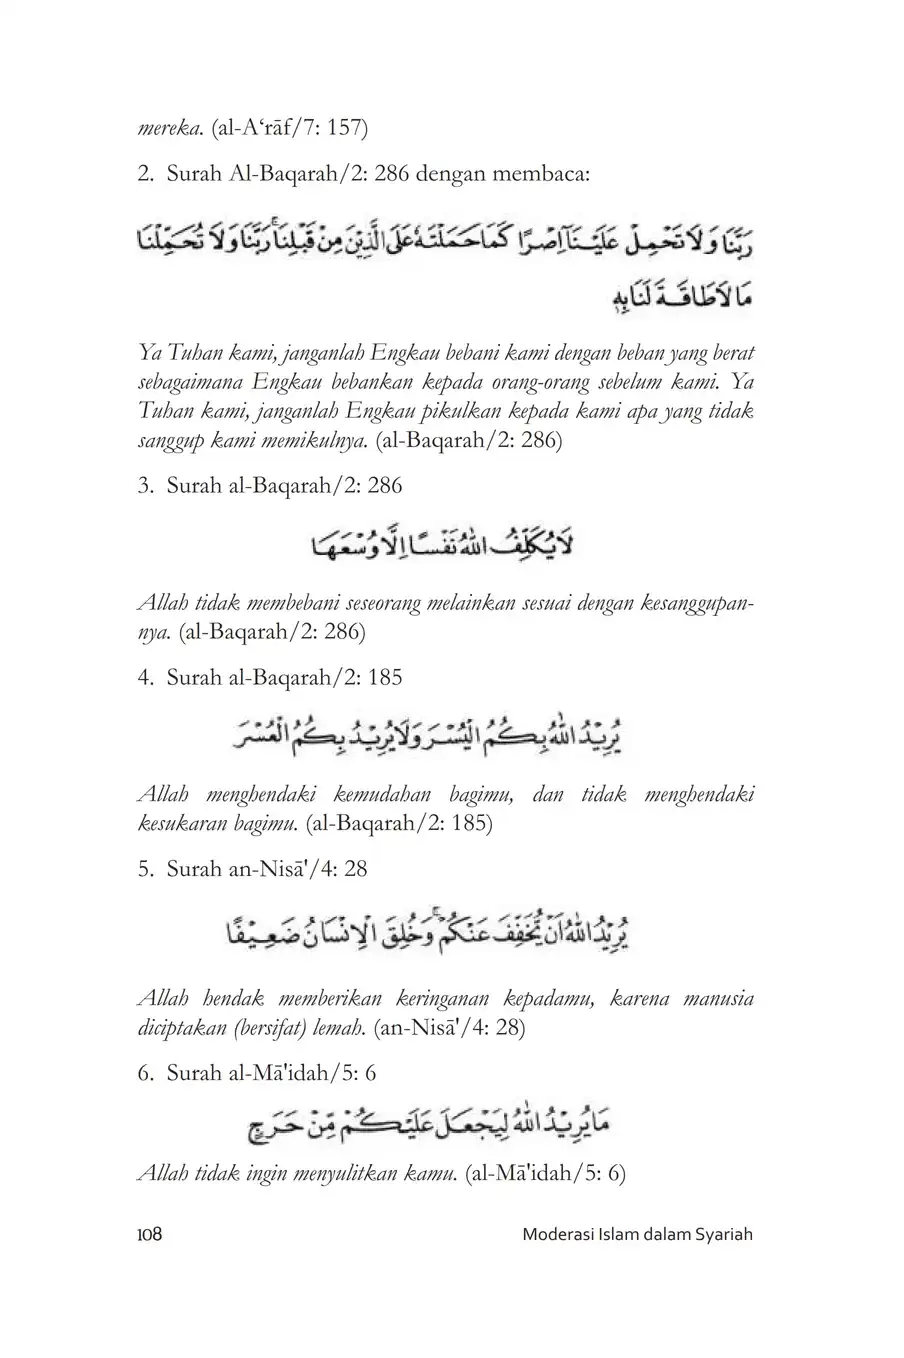 mereka. (al-A‘rāf/7: 157)
2. Surah Al-Baqarah/2: 286 dengan membaca:
رَبَّنَا وَلَا تَحْمِلْ عَلَيْنَآ اِصْرًا كَمَا حَمَلْتَهٗ عَلَى الَّذِيْنَ مِنْ قَبْلِنَاۚ رَبَّنَا وَلَا تُحَمِّلْنَا
مَا لَا طَاقَةَ لَنَا بِهٖ
Ya Tuhan kami, janganlah Engkau bebani kami dengan beban yang berat
sebagaimana Engkau bebankan kepada orang-orang sebelum kami. Ya
Tuhan kami, janganlah Engkau pikulkan kepada kami apa yang tidak
sanggup kami memikulnya. (al-Baqarah/2: 286)
3. Surah al-Baqarah/2: 286
لَا يُكَلِّفُ اللّٰهُ نَفْسًا اِلَّا وُسْعَهَا
Allah tidak membebani seseorang melainkan sesuai dengan kesanggupan-
nya. (al-Baqarah/2: 286)
4. Surah al-Baqarah/2: 185
يُرِيْدُ اللّٰهُ بِكُمُ الْيُسْرَ وَلَا يُرِيْدُ بِكُمُ الْعُسْرَ
Allah menghendaki kemudahan bagimu, dan tidak menghendaki
kesukaran bagimu. (al-Baqarah/2: 185)
5. Surah an-Nisā'/4: 28
يُرِيْدُ اللّٰهُ اَنْ يُّخَفِّفَ عَنْكُمْۚ وَخُلِقَ الْاِنْسَانُ ضَعِيْفًا
Allah hendak memberikan keringanan kepadamu, karena manusia
diciptakan (bersifat) lemah. (an-Nisā'/4: 28)
6. Surah al-Mā'idah/5: 6
مَا يُرِيْدُ اللّٰهُ لِيَجْعَلَ عَلَيْكُمْ مِّنْ حَرَجٍ
Allah tidak ingin menyulitkan kamu. (al-Mā'idah/5: 6)
108 Moderasi Islam dalam Syariah